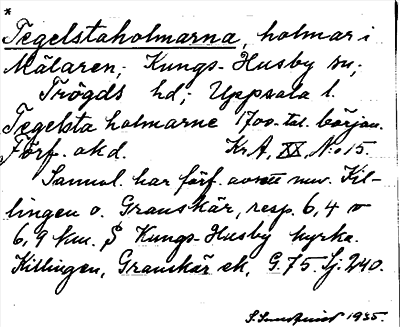 *
Tegelstaholmarna, holmar i
Mälaren; Kungs-Husby sn;
Trögds hd; Uppsala l.
Tegelsta holmarne 1700-tal. början.
Förf. okd. Kr.A, XX, N:o 15.
Sannol. har förf. avsett nuv. Kil-
lingen o. Granskär, resp. 6,4 o
6,9 km. S Kungs-Husby kyrka.
Killingen, Granskär ek, G. 75. Lj. 240.
1935.